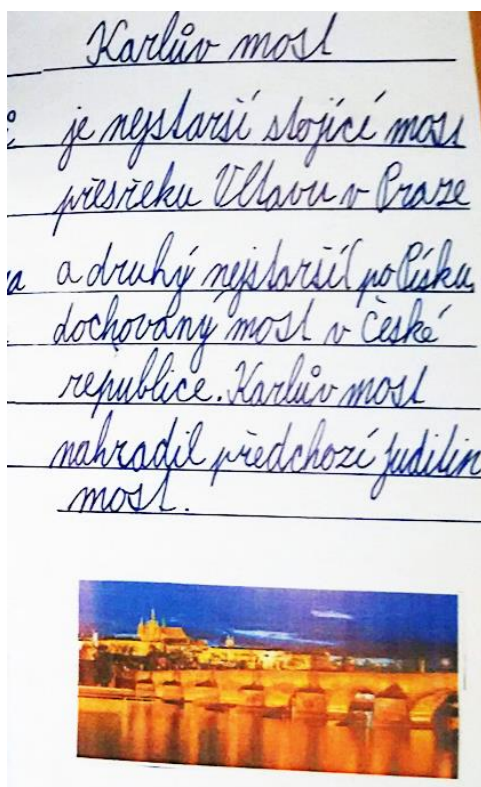 Karlův most
je nejstarší stojící most
přes řeku Vltavu v Praze
a druhý nejstarší (po Písku
dochovaný most v České
republice. Karlův most
nahradil předchozí Juditin
most.